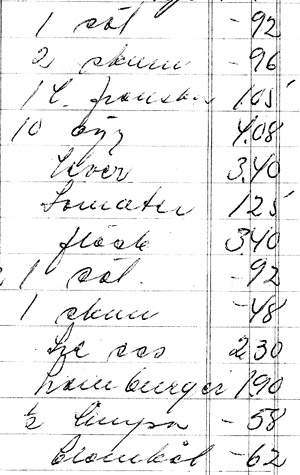 1 söt -92
2 skum -96
1 l. franska 1.05
10 ägg 4.08
lever 3.40
Tomater 125
fläsk 340
1 söt. -92
1 skum -48
230
hamburger 190
½ limpa -58
blomkål -62